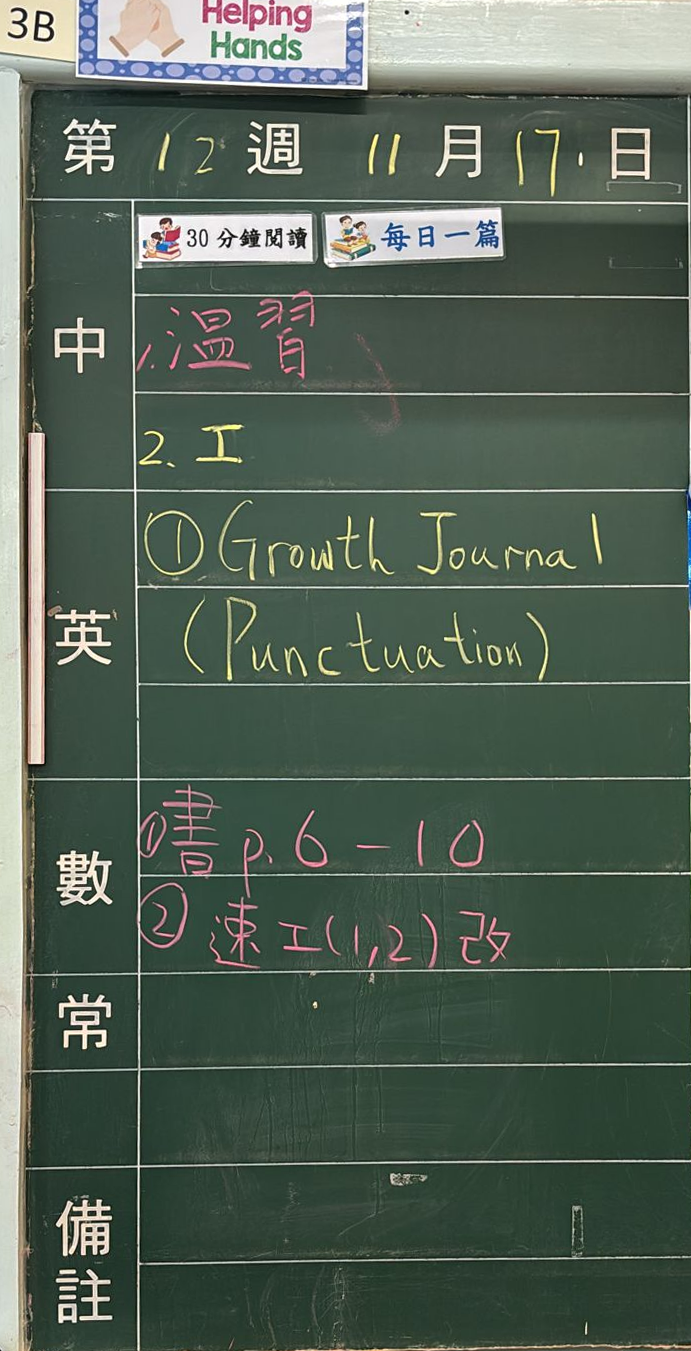 3B
Helping
Hands
第 12 週 11 月 17 日
30 分鐘閱讀 每日一篇
中
1. 溫習
2. 工
英
① Growth Journal
(Punctuation)
數
① 書 p. 6 - 10
② 速工(1,2) 改
常
備註